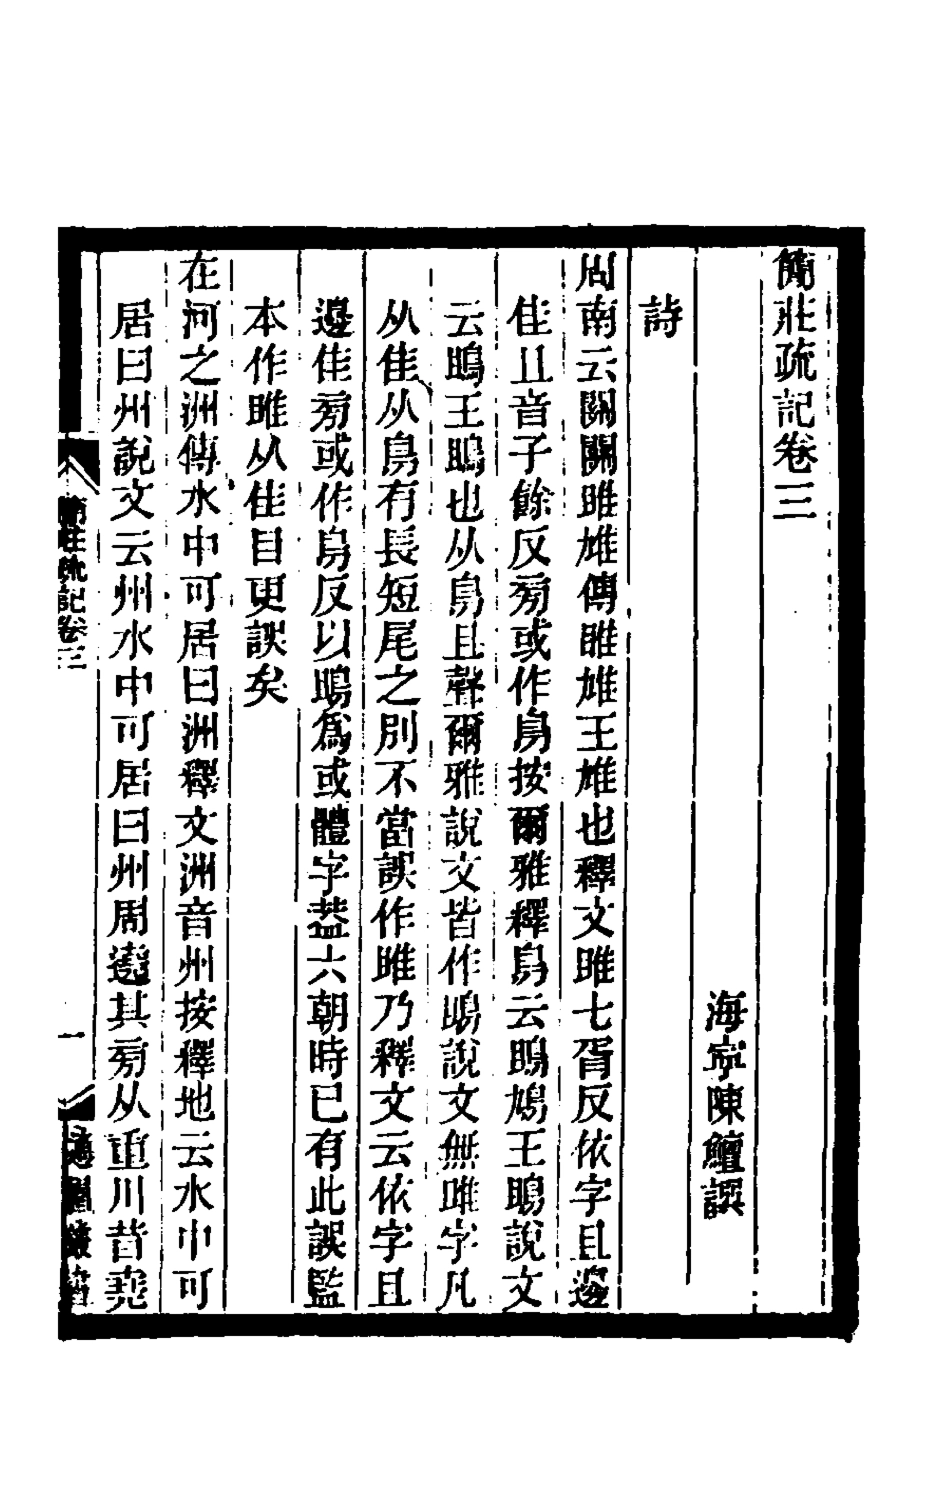 簡莊疏記卷三
海寧陳鱣譔
詩
周南云關關雎雄傳雎雄王雄也釋文雎七胥反依字且邊
隹且音子餘反旁或作鳥按爾雅釋鳥云鴡鳩王鴡說文
云鴡王鴡也从鳥且聲爾雅說文皆作鴡說文無雎字凡
从隹从鳥有長短尾之別不當誤作雎乃釋文云依字且
邊隹旁或作鳥反以鴡爲或體字葢六朝時已有此誤監
本作睢从隹目更誤矣
在河之洲傳水中可居曰洲釋文洲音州按釋地云水中可
居曰州說文云州水中可居曰州周遶其旁从重川昔堯
簡莊疏記卷三
一
適園叢書